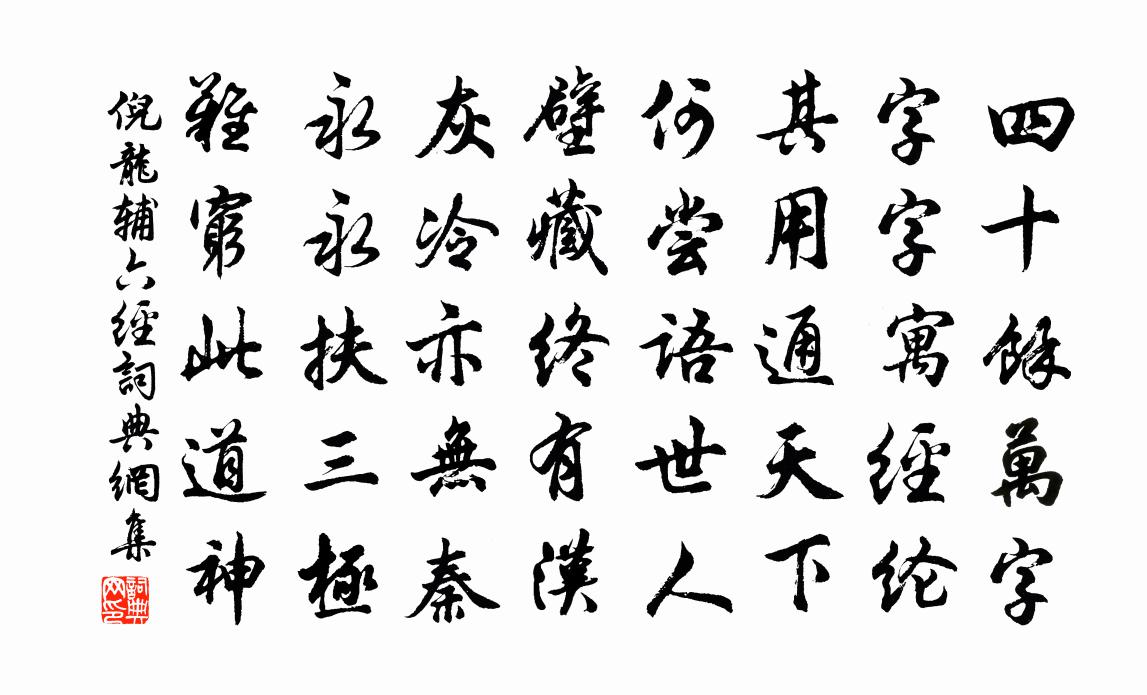 四十餘萬字
字字寓經纶
其用通天下
何尝語世人
壁藏終有漢
灰冷亦無秦
永永扶三極
難窮此道神
倪龍辅六經詞典網集
詞典网印